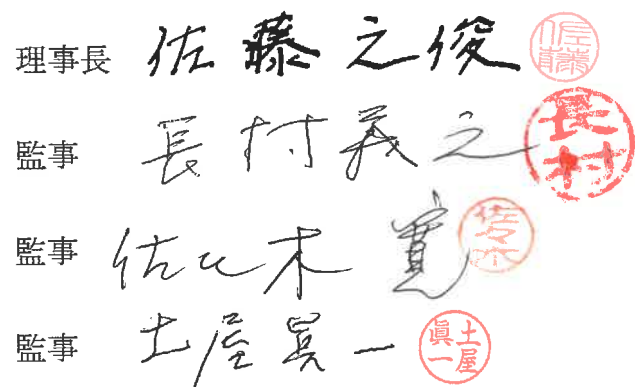 理事長 佐藤之俊 佐藤
監事 長村義之 長村
監事 佐々木寛 佐々木
監事 土屋眞一 土屋眞一